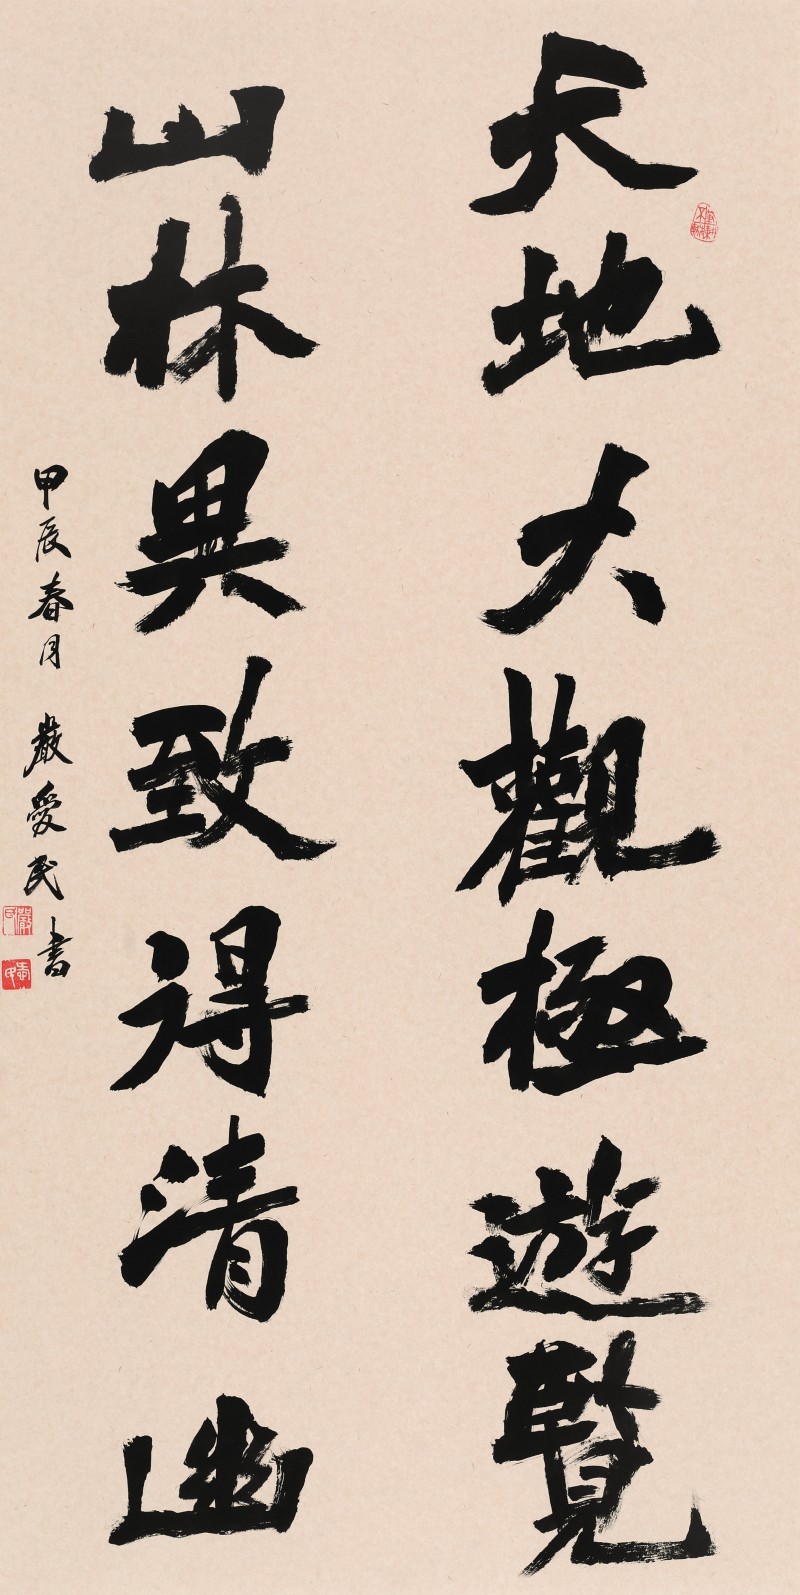 天地大觀極遊覽
山林異致得清幽
甲辰春月 嚴愛民書